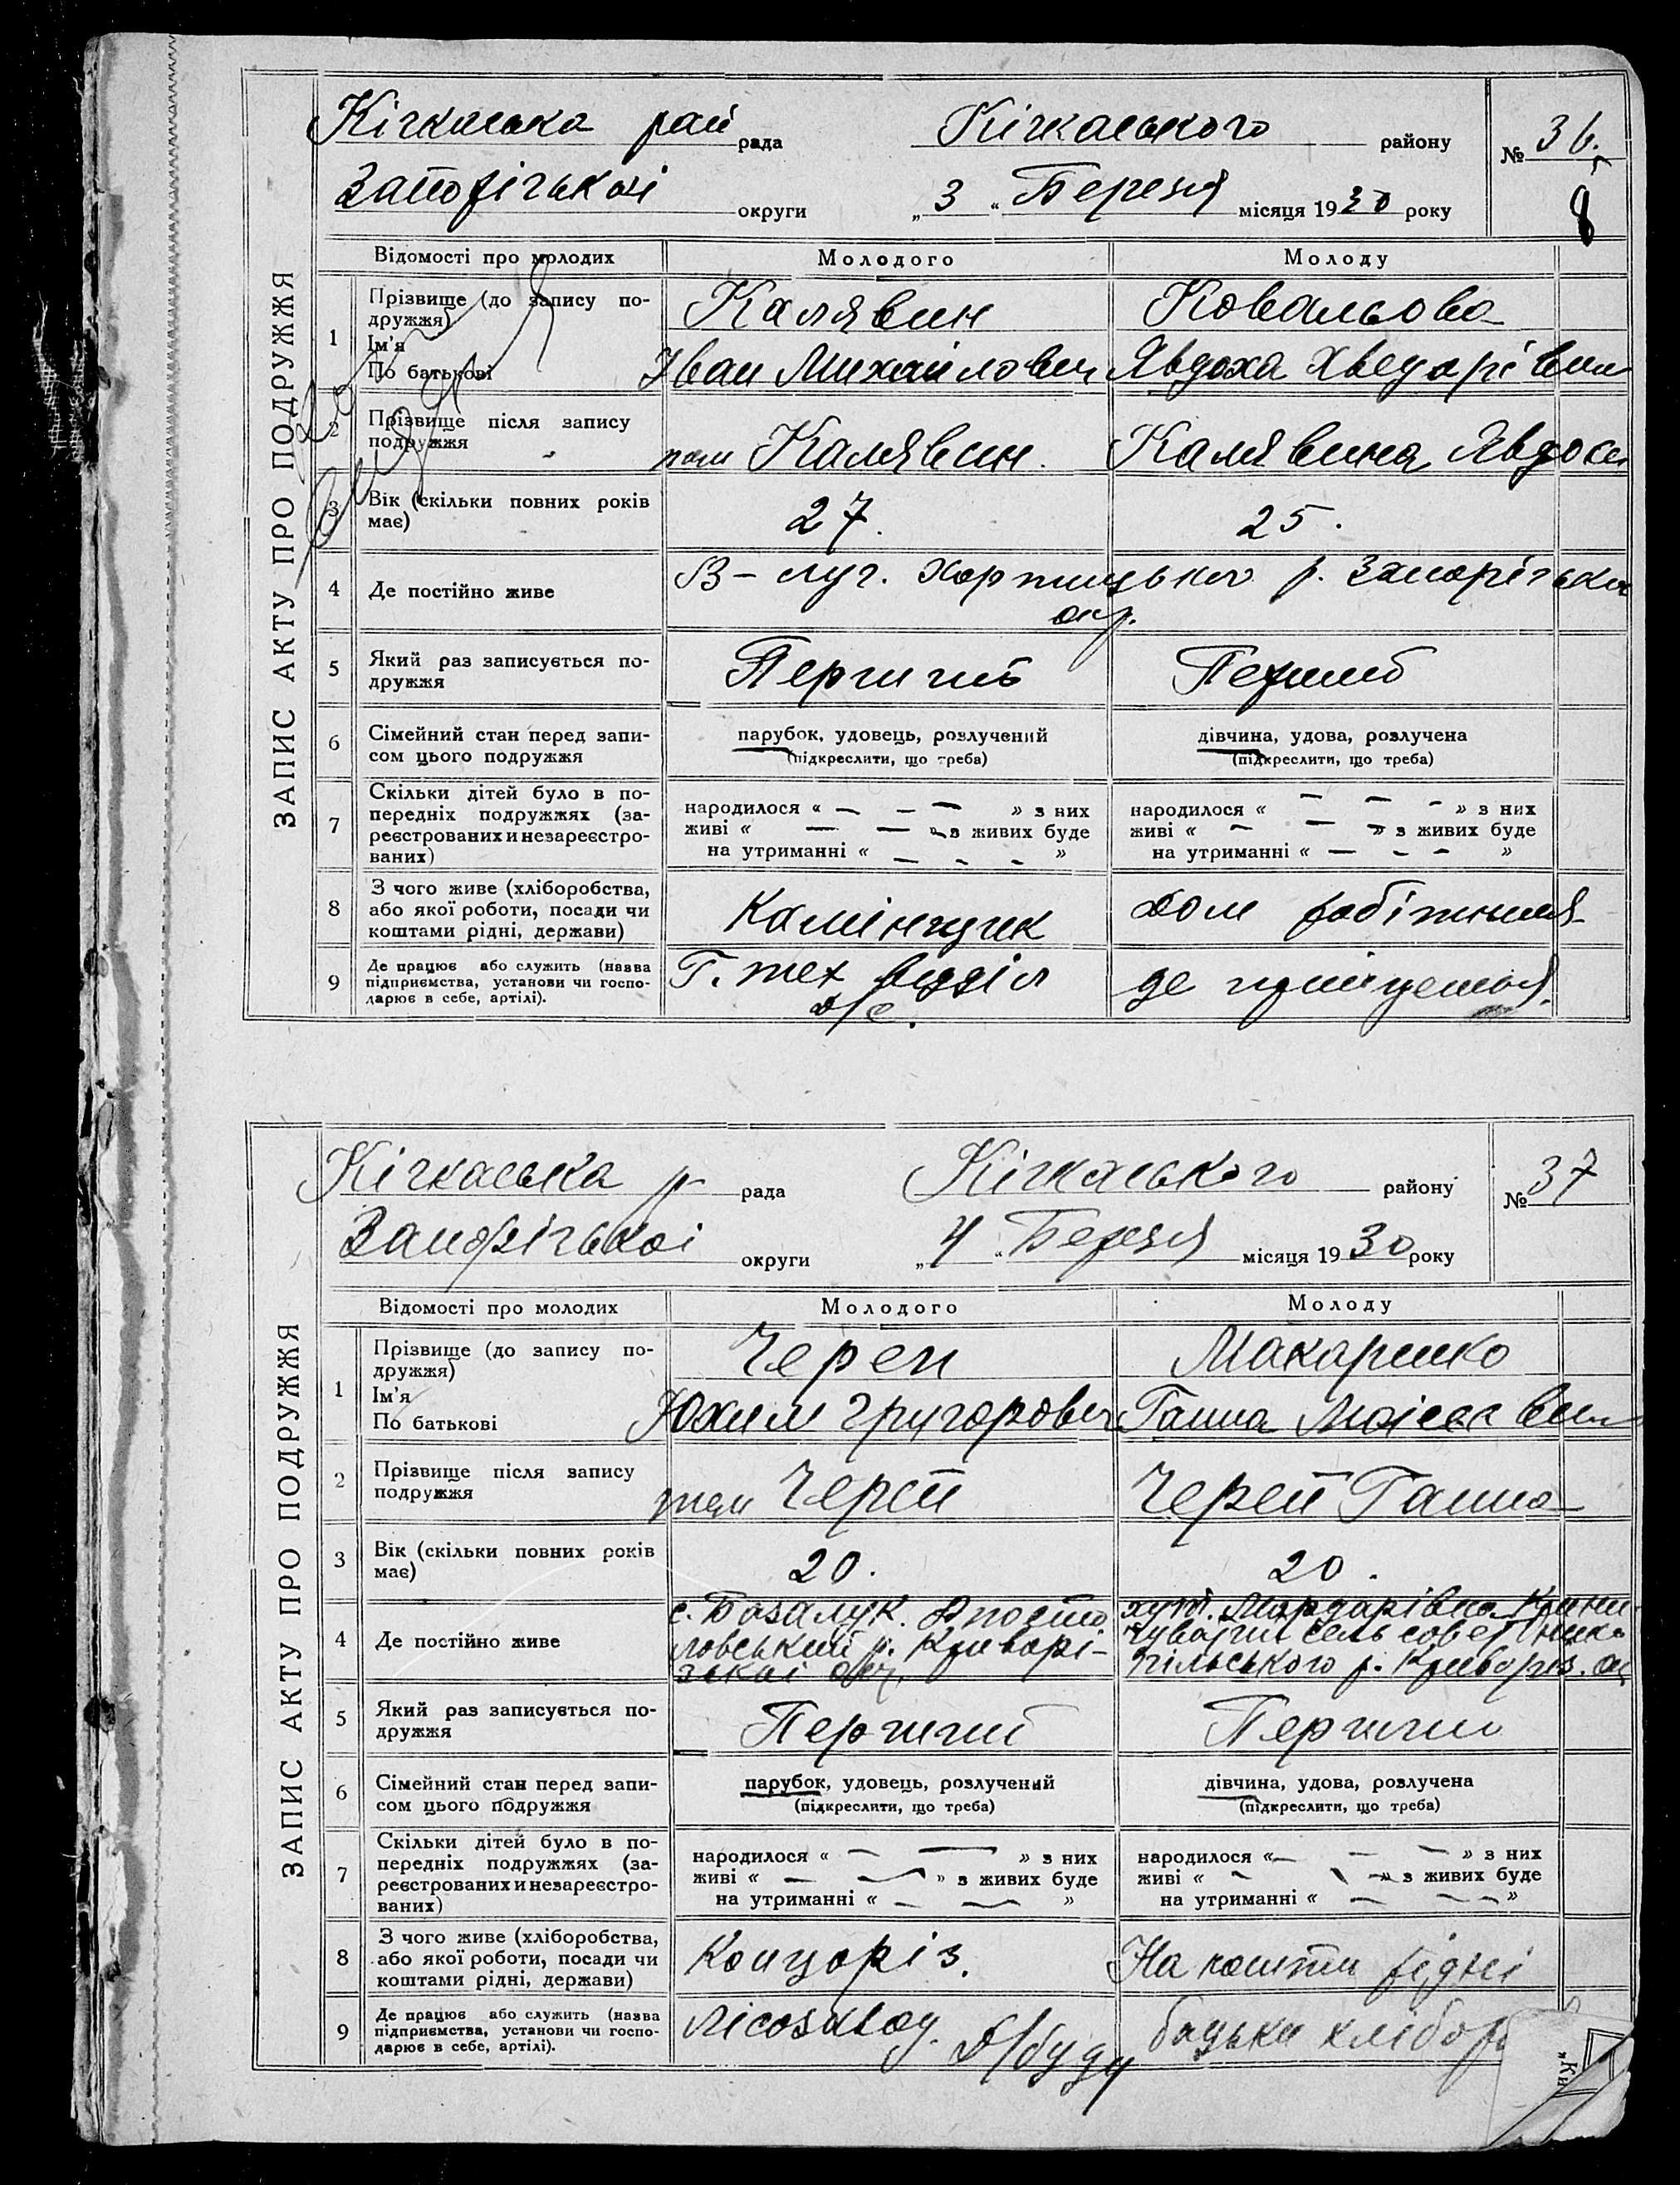 ЗАПИС АКТУ ПРО ПОДРУЖЖЯ
Кічкаська рай рада Кічкаського району № 36.
Запорізької округи „3“ Березня місяця 1930 року
8
Відомості про молодих Молодого Молоду
1 Прізвище (до запису подружжя) Калявин Ковальова
Ім'я По батькові Іван Михайлович Явдоха Хведорівна
2 Прізвище після запису подружжя Калявин. Калявина Явдоха
3 Вік (скільки повних років має) 27. 25.
4 Де постійно живе В-луг. Хортицького р. Запорізька
окр.
5 Який раз записується подружжя Перший Перший
6 Сімейний стан перед записом цього подружжя парубок, удовець, розлучений дівчина, удова, розлучена
(підкреслити, що треба) (підкреслити, що треба)
7 Скільки дітей було в попередніх подружжях (зареєстрованих и незареєстрованих)
народилося « — — — » з них народилося « — — - » з них
живі « — — » з живих буде живі « — — — » з живих буде
на утриманні « — - - » на утриманні « — - — »
8 З чого живе (хліборобства, або якої роботи, посади чи коштами рідні, держави) Камінщик дом робітниця
9 Де працює або служить (назва підприємства, установи чи господарює в себе, артілі). Г. тех відділ де
д/с.
ЗАПИС АКТУ ПРО ПОДРУЖЖЯ
Кічкаська р рада Кічкаського району № 37
Запорізької округи „4“ Березня місяця 1930 року
Відомості про молодих Молодого Молоду
1 Прізвище (до запису подружжя) Череп Макаренко
Ім'я По батькові Юхим Григорович Ганна Моісеевна
2 Прізвище після запису подружжя Череп Череп Ганна
3 Вік (скільки повних років має) 20. 20.
4 Де постійно живе с. Базалук. Апосто хут. Мордарівна
ловський р. Криворі- сельсовет Нико
зької окр. пільського р. Криворіз. ок
5 Який раз записується подружжя Перший Перший
6 Сімейний стан перед записом цього подружжя парубок, удовець, розлучений дівчина, удова, розлучена
(підкреслити, що треба) (підкреслити, що треба)
7 Скільки дітей було в попередніх подружжях (зареєстрованих и незареєстрованих)
народилося « — — » з них народилося « — — — » з них
живі « — — » з живих буде живі « — — » з живих буде
на утриманні « — — » на утриманні « — — — »
8 З чого живе (хліборобства, або якої роботи, посади чи коштами рідні, держави) Концоріз. На кошти рідні
9 Де працює або служить (назва підприємства, установи чи господарює в себе, артілі). Лісозавод. Д/буду батьки хлібор
„Ки